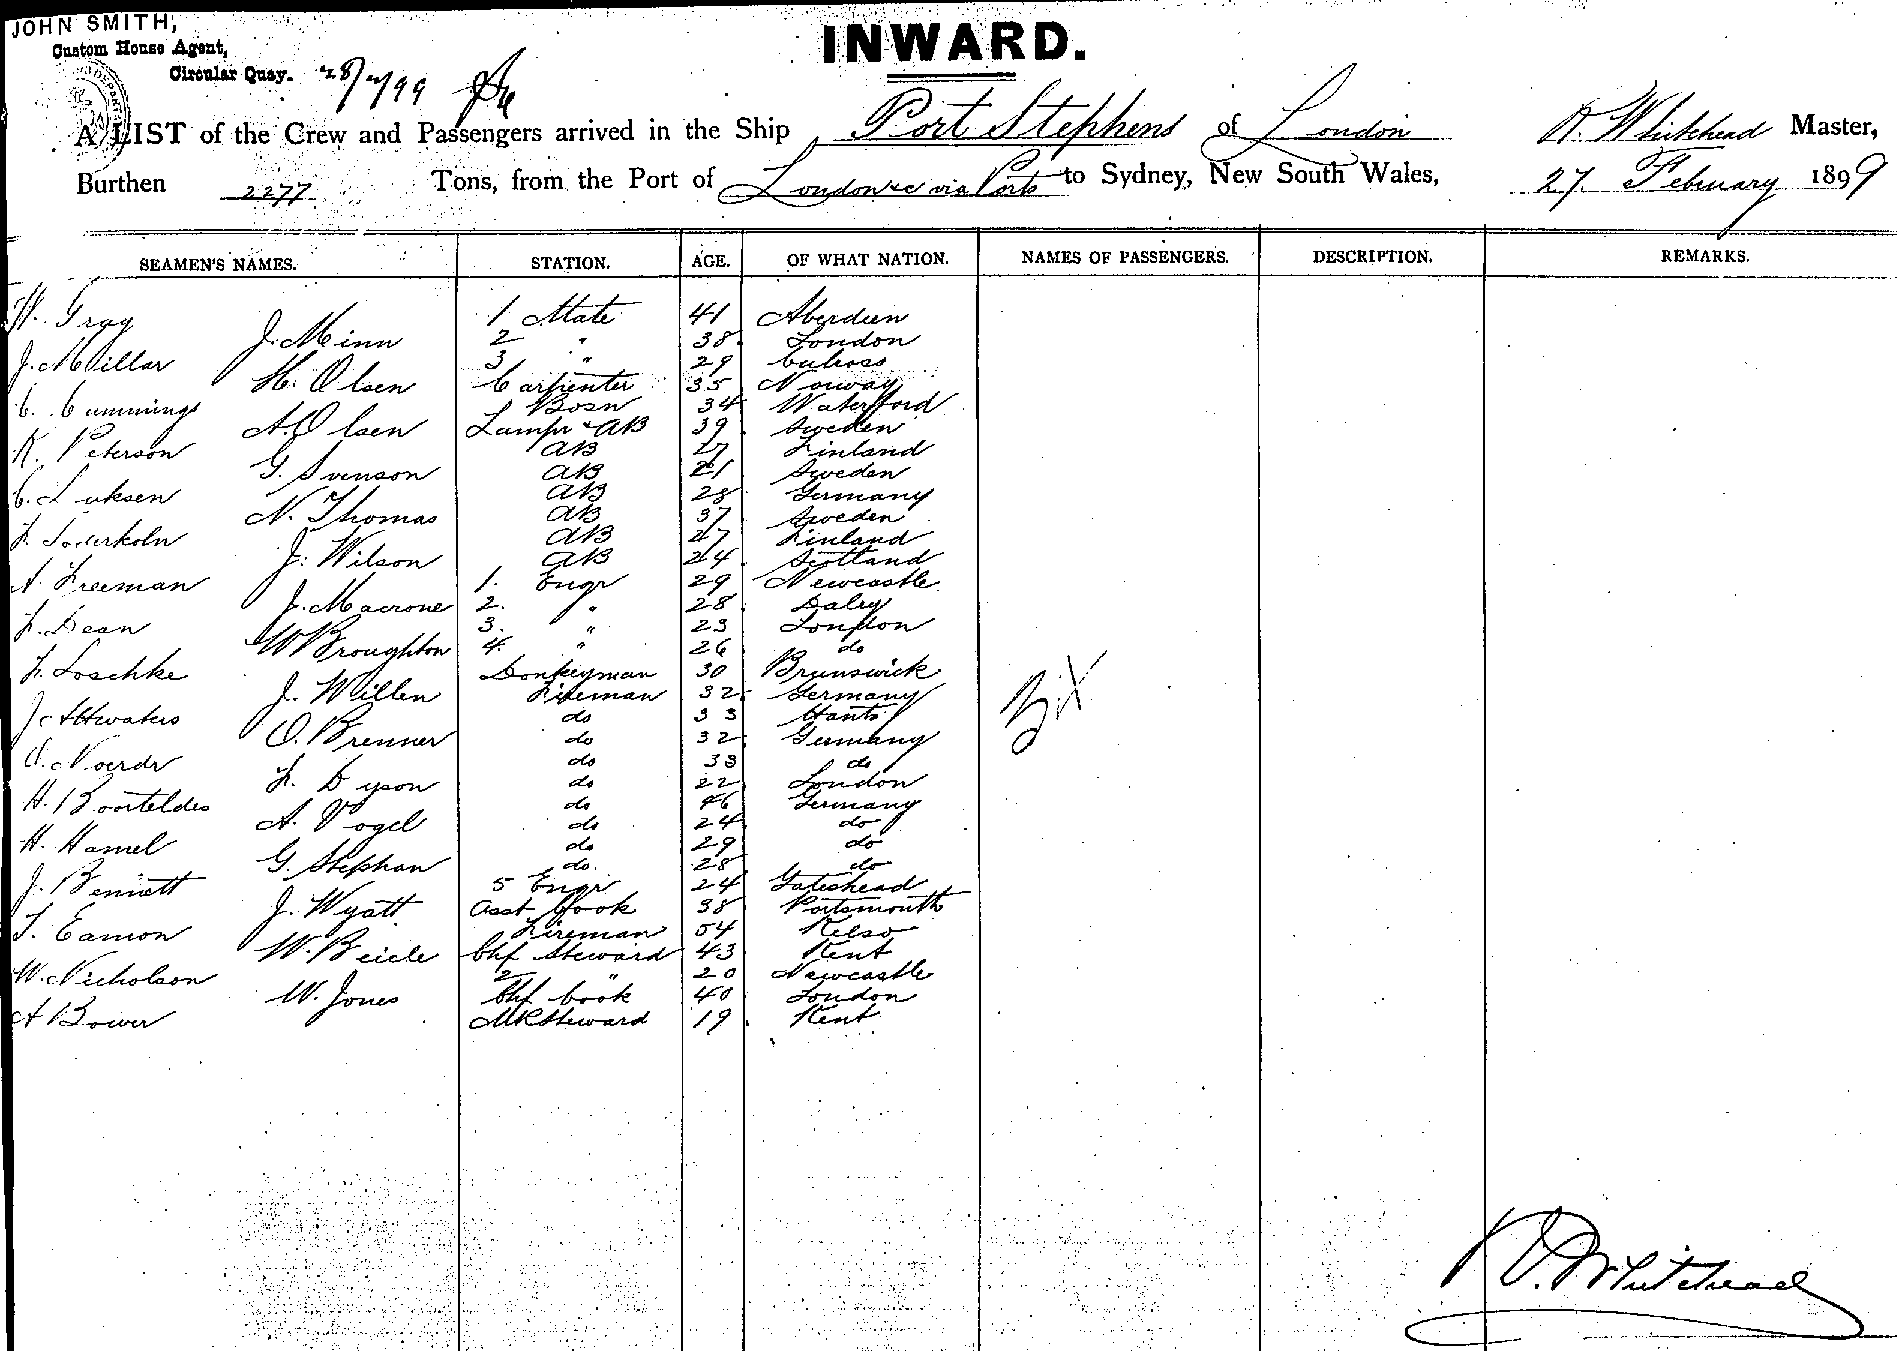 JOHN SMITH,
Custom House Agent,
Circular Quay. 28/2/99
INWARD.
A LIST of the Crew and Passengers arrived in the Ship Port Stephens of London R. Whitehead Master,
Burthen 2277 Tons, from the Port of London &c via Ports to Sydney, New South Wales, 27 February 1899
SEAMEN'S NAMES. STATION. AGE. OF WHAT NATION. NAMES OF PASSENGERS. DESCRIPTION. REMARKS.
H. Gray 1 Mate 41 Aberdeen
J. Minn 2 " 38 London
J. Millar 3 " 29 Culross
H. Olsen Carpenter 35 Norway
C. Cummings Bosn 34 Waterford
A. Olsen Lampr & AB 39 Sweden
K. Peterson AB 27 Finland
G. Svenson AB 21 Sweden
C. Luksen AB 28 Germany
N. Thomas AB 37 Sweden
F. Soderholn AB 27 Finland
J. Wilson AB 24 Scotland
A. Freeman 1. Engr 29 Newcastle
J. Macrone 2. " 28 Dalry
F. Dean 3. " 23 London
W Broughton 4. " 26 do
F. Loschke Donkeyman 30 Brunswick
J. Willen Fireman 32 Germany
J. Attwaters do 33 Hants
O. Brenner do 32 Germany
O. Noerdr do 33 do
F. Dyson do 22 London
H. Boorteldes do 46 Germany
A. Vogel do 24 do
H. Hamel do 29 do
G. Stephan do. 28 do
J. Bennett 5 Engr 24 Gateshead
J. Wyatt Asst. Cook 38 Portsmouth
T. Eamon Fireman 54 Kelso
W. Beicle Chf Steward 43 Kent
W. Nicholson 2 " 20 Newcastle
W. Jones Chf Cook 40 London
A Bower MRSteward 19 Kent
R. Whitehead